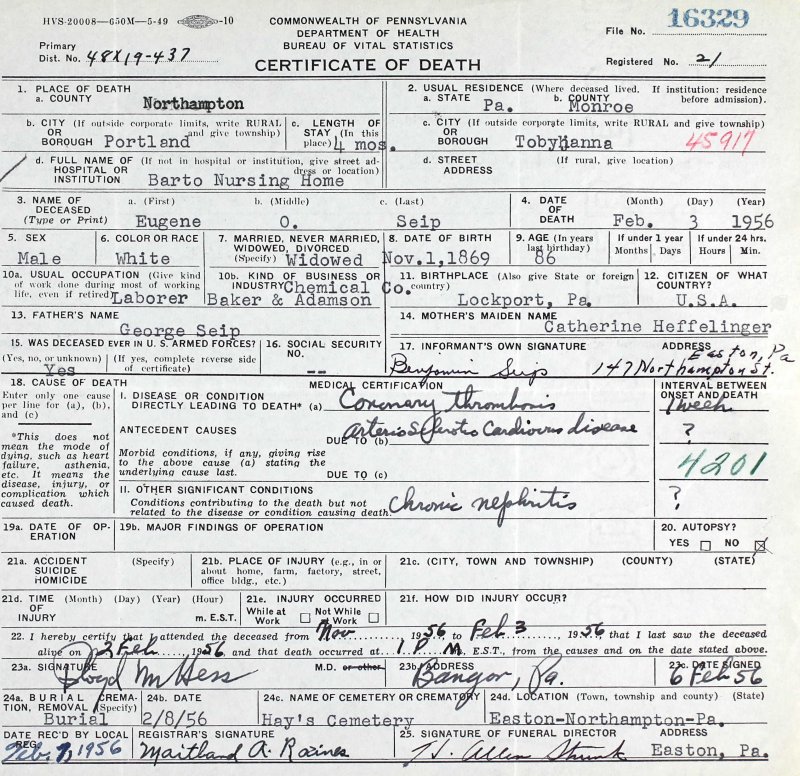 HVS-20008—650M—5-49 -10
COMMONWEALTH OF PENNSYLVANIA
DEPARTMENT OF HEALTH
BUREAU OF VITAL STATISTICS
CERTIFICATE OF DEATH
Primary
Dist. No. 48X19-437
File No. 16329
Registered No. 21
1. PLACE OF DEATH
a. COUNTY Northampton
2. USUAL RESIDENCE (Where deceased lived. If institution: residence before admission).
a. STATE Pa. b. COUNTY Monroe
b. CITY (If outside corporate limits, write RURAL and give township)
OR
BOROUGH Portland
c. LENGTH OF STAY (In this place) 4 mos.
c. CITY (If outside corporate limits, write RURAL and give township)
OR
BOROUGH Tobyhanna 45917
d. FULL NAME OF (If not in hospital or institution, give street address or location)
HOSPITAL OR
INSTITUTION Barto Nursing Home
d. STREET ADDRESS (If rural, give location)
3. NAME OF DECEASED (Type or Print)
a. (First) b. (Middle) c. (Last)
Eugene O. Seip
4. DATE OF DEATH (Month) (Day) (Year)
Feb. 3 1956
5. SEX
Male
6. COLOR OR RACE
White
7. MARRIED, NEVER MARRIED, WIDOWED, DIVORCED (Specify) Widowed
8. DATE OF BIRTH
Nov.1,1869
9. AGE (In years last birthday)
86
If under 1 year
Months Days
If under 24 hrs.
Hours Min.
10a. USUAL OCCUPATION (Give kind of work done during most of working life, even if retired) Laborer
10b. KIND OF BUSINESS OR INDUSTRY Chemical Co.
Baker & Adamson
11. BIRTHPLACE (Also give State or foreign country)
Lockport, Pa.
12. CITIZEN OF WHAT COUNTRY?
U.S.A.
13. FATHER'S NAME
George Seip
14. MOTHER'S MAIDEN NAME
Catherine Heffelinger
15. WAS DECEASED EVER IN U. S. ARMED FORCES?
(Yes, no, or unknown) (If yes, complete reverse side of certificate)
Yes
16. SOCIAL SECURITY NO.
--
17. INFORMANT'S OWN SIGNATURE ADDRESS
Benjamin Seip 147 Northampton St. Easton, Pa
18. CAUSE OF DEATH
Enter only one cause per line for (a), (b), and (c)
*This does not mean the mode of dying, such as heart failure, asthenia, etc. It means the disease, injury, or complication which caused death.
MEDICAL CERTIFICATION
INTERVAL BETWEEN ONSET AND DEATH
I. DISEASE OR CONDITION
DIRECTLY LEADING TO DEATH* (a) Coronary thrombosis 1 week
ANTECEDENT CAUSES
DUE TO (b) disease ?
Morbid conditions, if any, giving rise to the above cause (a) stating the underlying cause last.
DUE TO (c)
4201
II. OTHER SIGNIFICANT CONDITIONS
Conditions contributing to the death but not related to the disease or condition causing death. chronic nephritis ?
19a. DATE OF OPERATION
19b. MAJOR FINDINGS OF OPERATION
20. AUTOPSY?
YES NO
21a. ACCIDENT SUICIDE HOMICIDE (Specify)
21b. PLACE OF INJURY (e.g., in or about home, farm, factory, street, office bldg., etc.)
21c. (CITY, TOWN AND TOWNSHIP) (COUNTY) (STATE)
21d. TIME OF INJURY (Month) (Day) (Year) (Hour)
m. E.S.T.
21e. INJURY OCCURRED
While at Work Not While at Work
21f. HOW DID INJURY OCCUR?
22. I hereby certify that I attended the deceased from Nov, 1956 to Feb 3, 1956 that I last saw the deceased
alive on 2 Feb, 1956 and that death occurred at 1 P. M. E.S.T., from the causes and on the date stated above.
23a. SIGNATURE M.D. or other
Floyd M Hess
23b. ADDRESS
Bangor, Pa.
23c. DATE SIGNED
6 Feb 56
24a. BURIAL CREMATION, REMOVAL (Specify)
Burial
24b. DATE
2/8/56
24c. NAME OF CEMETERY OR CREMATORY
Hay's Cemetery
24d. LOCATION (Town, township and county) (State)
Easton-Northampton-Pa.
DATE REC'D BY LOCAL REG.
Feb. 7, 1956
REGISTRAR'S SIGNATURE
Maitland A. Raines
25. SIGNATURE OF FUNERAL DIRECTOR ADDRESS
H. Allen Strunk Easton, Pa.